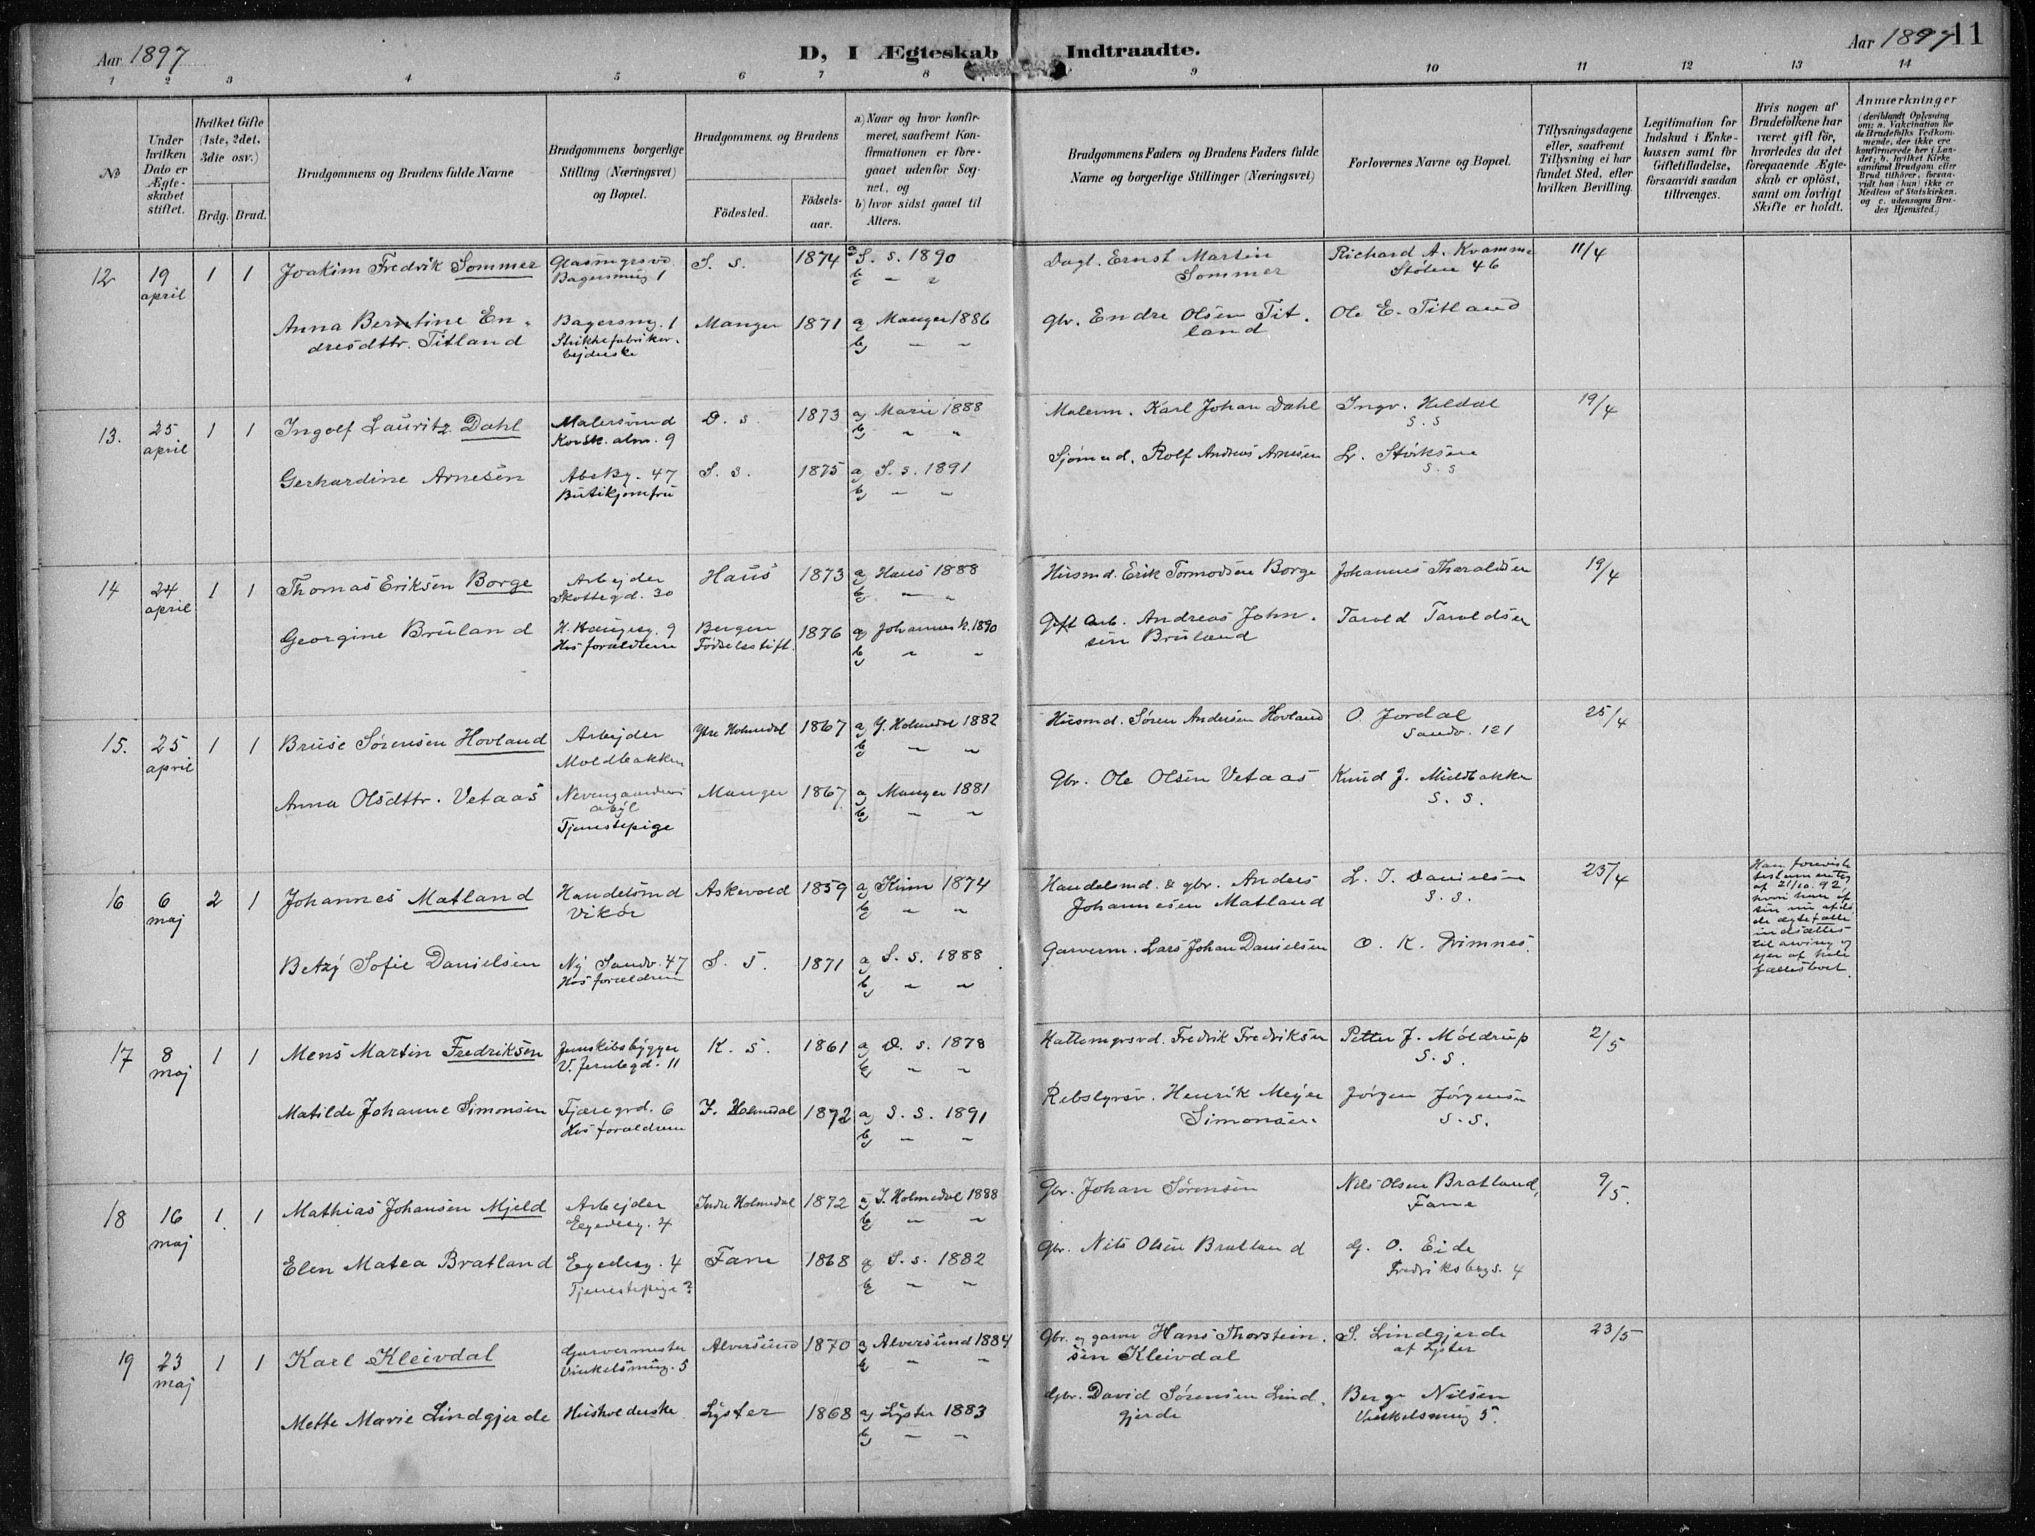 Aar 1897
D, I Ægteskab Indtraadte.
Aar 1897
11
1 2 3 4 5 6 7 8 9 10 11 12 13 14
No
Under hvilken Dato er Ægteskabet stiftet.
Hvilket Gifte (1ste, 2det, 3die osv.)
Brdg. Brud.
Brudgommens og Brudens fulde Navne
Brudgommens borgerlige Stilling (Næringsvei) og Bopæl.
Brudgommens og Brudens
Födested.
Födselsaar.
a) Naar og hvor konfirmeret, saafremt Konfirmationen er foregaaet udenfor Sognet, og
b) hvor sidst gaaet til Alters.
Brudgommens Faders og Brudens Faders fulde Navne og borgerlige Stillinger (Næringsvei)
Forlovernes Navne og Bopæl.
Tillysningsdagene eller, saafremt Tillysning ei har fundet Sted, efter hvilken Bevilling.
Legitimation for Indskud i Enkekassen samt for Giftetilladelse, forsaavidt saadan tiltrænges.
Hvis nogen af Brudefolkene har været gift för, hvorledes da det foregaaende Ægteskab er oplöst, samt om lovligt Skifte er holdt.
Anmærkninger
(deriblandt Oplysning om: a. Vakcination for de Brudefolks Vedkommende, der ikke ere konfirmerede her i Landet; b. hvilket Kirkesamfund Brudgom eller Brud tilhörer, forsaavidt han (hun) ikke er Medlem af Statskirken. og c. udensogns Brudes Hjemsted.)
12 19 april 1 1 Joakim Fredrik Sommer
Bagersmug 1
S. s. 1874 a S. s. 1890
b " "
Dagl. Ernst Martin Sommer
Richard A. Kvamme
Stølen 46
11/4
Anna Berntine Endresdttr. Titland
Bagersmg. 1
Manger 1871 a Manger 1886
b " "
gbr. Endre Olsen Titland
Ole E. Titland
13. 25 april 1 1 Ingolf Lauritz Dahl
Malersvend
Korsk. alm. 9
D. s. 1873 a Marie 1888
b " "
Malerm. Karl Johan Dahl
Ingv. Heldal
s. s
19/4
Gerhardine Arnesen
47
Butikjomfru
S. s. 1875 a S. s. 1891
b " "
Sjømd. Rolf Andreas Arnesen
L. Størksen
s. s
14 24 april 1 1 Thomas Eriksen Borge
Arbejder
Skottegd. 30
Haus 1873 a Haus 1888
b " "
Husmd. Erik Tormodsen Borge
Johannes Tharaldsen
19/4
Georgine Bruland
9
Hos forældrene
Bergens Fødselsstift. 1876 a Johannes k. 1890
b " "
Arb. Andreas Johnsen Bruland
Tarold Taroldsen
15. 25 april 1 1 Bruse Sørensen Hovland
Arbejder
Moldbakken
Ytre Holmedal 1867 a Y. Holmedal 1882
b " "
Husmd. Søren Andersen Hovland
O. Jordal
Sandv. 121
25/4
Anna Olsdttr. Vetaas
Tjenestepige
Manger 1867 a Manger 1881
b " "
Gbr. Ole Olsen Vetaas
Knud J. Muldbakke
s. s.
16 6 maj 2 1 Johannes Matland
Handelsmd
Vikør
Askevold 1859 a Kinn 1874
b " "
Handelsmd. & gbr. Anders Johannesen Matland
L. J. Danielsen
s. s.
25/4
Betzy Sofie Danielsen
Ny Sandv. 47
Hos forældrene
S. S. 1871 a S. s. 1888
b " "
Garverm. Lars Johan Danielsen
O. K. Grimnes.
17 8 maj 1 1 Mens Martin Fredriksen
Jernskibsbygger
11
K. s. 1861 a D. s. 1878
b " "
Fredrik Fredriksen
Petter J. Møldrup
s. s.
2/5
Matilde Johanne Simonsen
Tjæregrd. 6
Hos forældrene
Y. Holmedal 1872 a S. s. 1891
b " "
Rebslgrsv. Henrik Meyer Simonsen
Jørgen Jørgensen
s. s.
18 16 maj 1 1 Mathias Johansen Mjeld
Arbejder
Egedesg. 4
Indre Holmedal 1872 a I. Holmedal 1888
b " "
Gbr. Johan Sørensen
Nils Olsen Bratland,
Fane
9/5.
Elen Matea Bratland
Egedesg. 4
Tjenestepige?
Fane 1868 a S. s. 1882
b " "
Gbr. Nils Olsen Bratland
O. Eide
Fredriksbergs. 4
19 23 maj 1 1 Karl Kleivdal
Garvermester
Vinkelsmug. 5
Alversund 1870 a Alversund 1884
b " "
Gbr. og garver Hans Thorsteinsen Kleivdal
S. Lindgjerde
af Lyster
23/5
Mette Marie Lindgjerde
Husholderske
Lyster 1868 a Lyster 1883
b " "
Gbr. David Sørensen Lindgjerde
Berge Nilsen
Vinkelsmug 5.